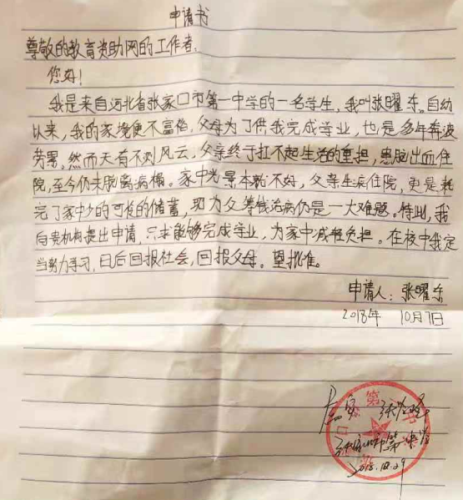 申请书
尊敬的教育资助网的工作者,
您好!
我是来自河北省张家口市第一中学的一名学生,我叫张曜东。自幼
以来,我的家境便不富裕,父母为了供我完成学业,也是多年奔波
劳累,然而天有不测风云,父亲终于扛不起生活的重担,患脑出血住
院,至今仍未脱离病榻。家中光景本就不好,父亲生病住院,更是耗
完了家中少的可怜的储蓄,现为父筹钱治病仍是一大难题。特此,我
向贵机构提出申请,只求能够完成学业,为家中减轻负担。在校中我定
当努力学习,日后回报社会,回报父母。望批准。
申请人:张曜东
2018年 10月7日